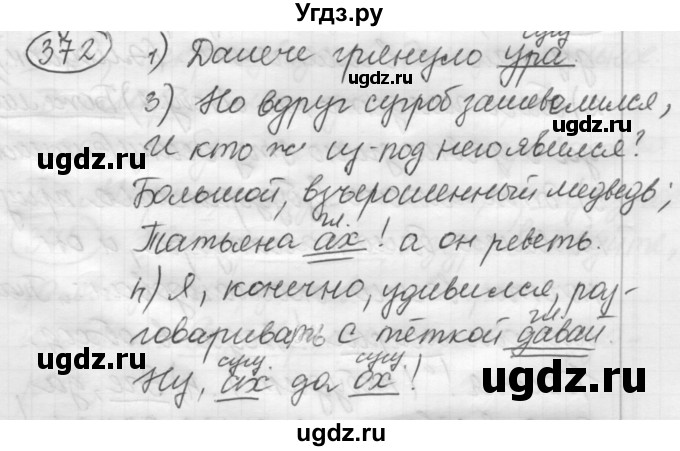 Угдз.ру
372 1) Далече грянуло ура.
сущ
3) Но вдруг сугроб зашевелился,
И кто ж из-под него явился?
Большой, взъерошенный медведь;
гл.
Татьяна ах! а он реветь.
4) Я, конечно, удивился, раз-
гл.
говаривать с тёткой давай.
сущ. сущ
Ну, ах да ох!
ugdz.ru
ugdz.ru
ugdz.ru
ugdz.ru
ugdz.ru
ugdz.ru
ugdz.ru
ugdz.ru
ugdz.ru
ugdz.ru